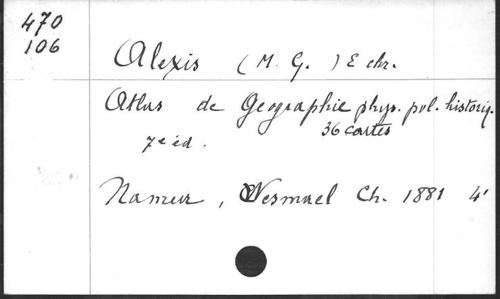 470
106
Alexis (M. G.) E chr.
Atlas de Géographie phys. pol. historiq.
7e éd. 36 cartes
Namur, Wesmael Ch. 1881 4'